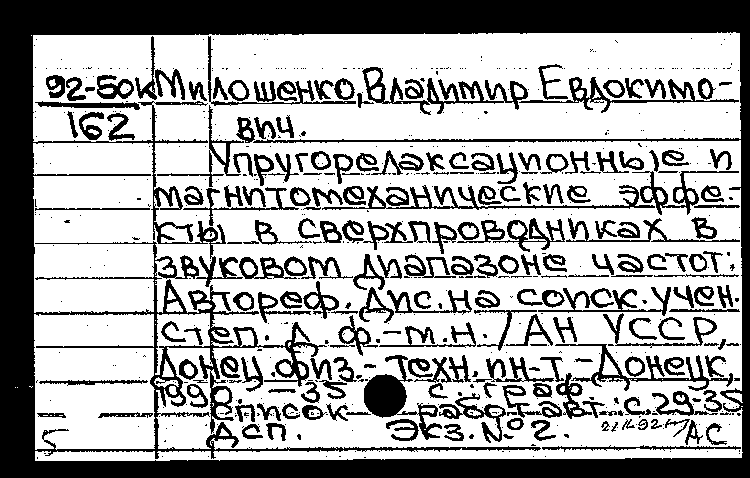 92-50к Милошенко, Владимир Евдокимо-
162 вич.
Упругорелаксационные и
магнитомеханические эффе-
кты в сверхпроводниках в
звуковом диапазоне частот:
Автореф. Дис. на соиск. учен.
степ. д. ф.-м.н. / АН УССР,
Донец. физ.- техн. ин-т, - Донецк,
1990. - 35 с.: граф.
список работ авт.: с. 29-35
5 Дсп. Экз. №2. АС